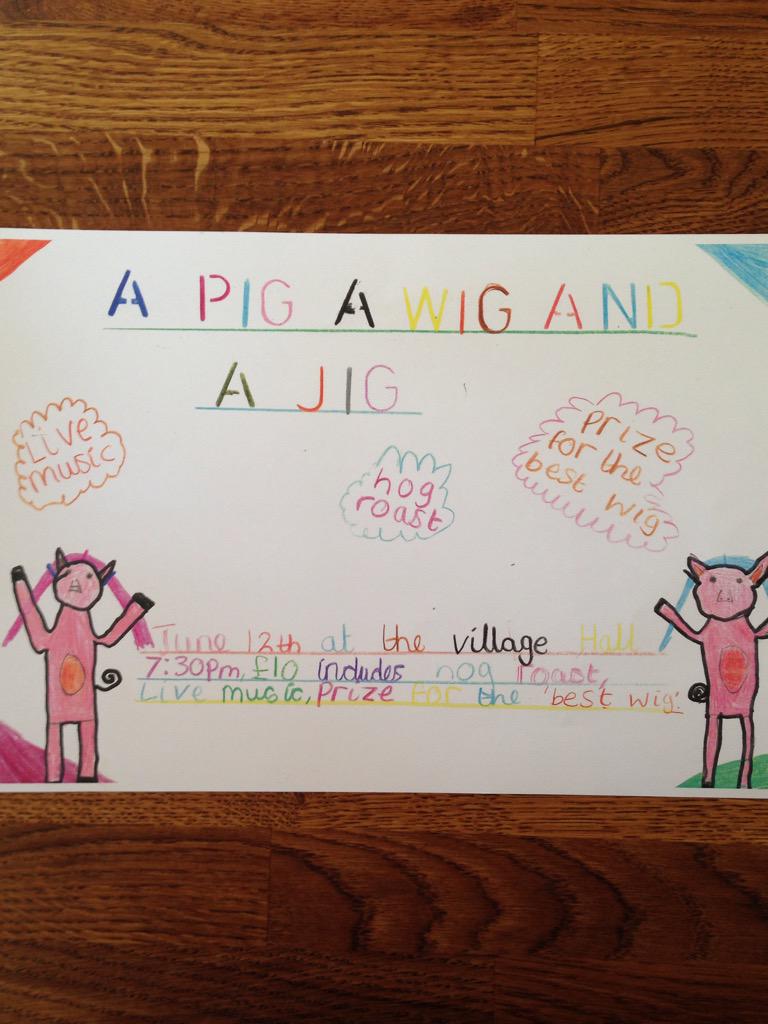 A PIG A WIG AND
A JIG
Live
music
hog
roast
Prize
for the
best wig
June 12th at the village Hall
7:30pm, £10 includes hog roast,
Live music, Prize for the 'best wig'.